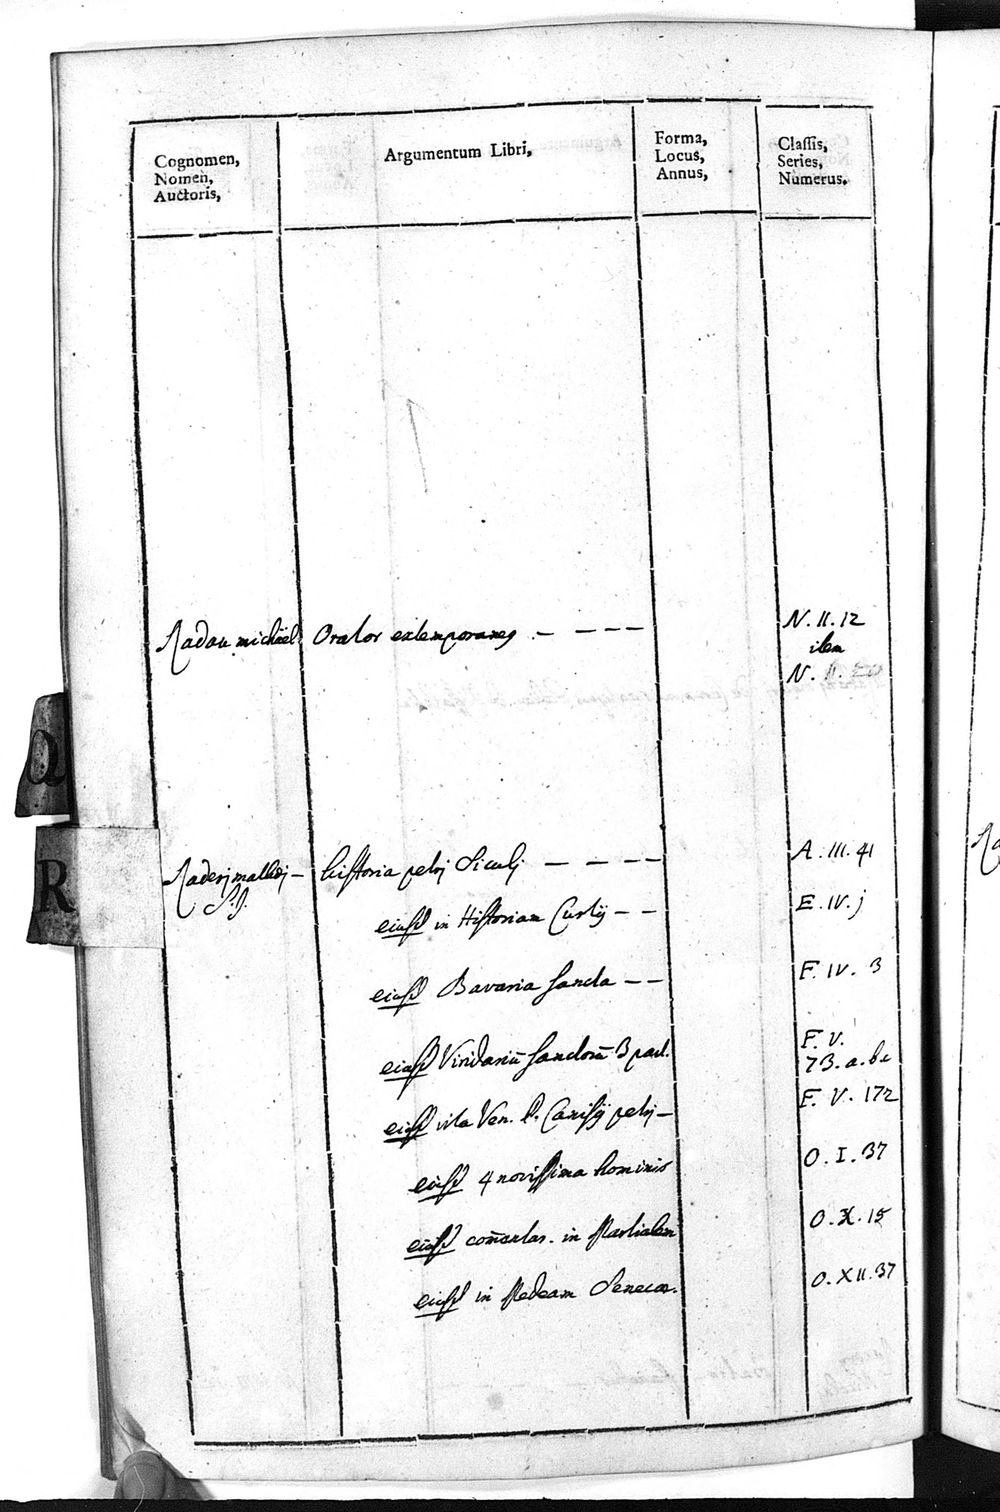 Cognomen,
Nomen,
Auctoris,
Argumentum Libri,
Forma,
Locus,
Annus,
Classis,
Series,
Numerus.
Radau michäel. Orator extemporaneg - - - - N. II. 12
item
N. II.
Q
Raderj matthej - historia petrj Siculj - - - - A. III. 41
S.J.
eiusd in Historiam Curtij - - E. IV. j
eiusd Bavaria sancta - - F. IV. 3
eiusd Viridariū sanctorū 3 part. F. V.
73. a. b. c
eiusd vita Ven. P. Canisij petrj - F. V. 172
eiusd 4 novissima hominis O. I. 37
eiusd com̄entar. in Martialem O. X. 15
eiusd in Medeam Senecæ. O. XII. 37
R